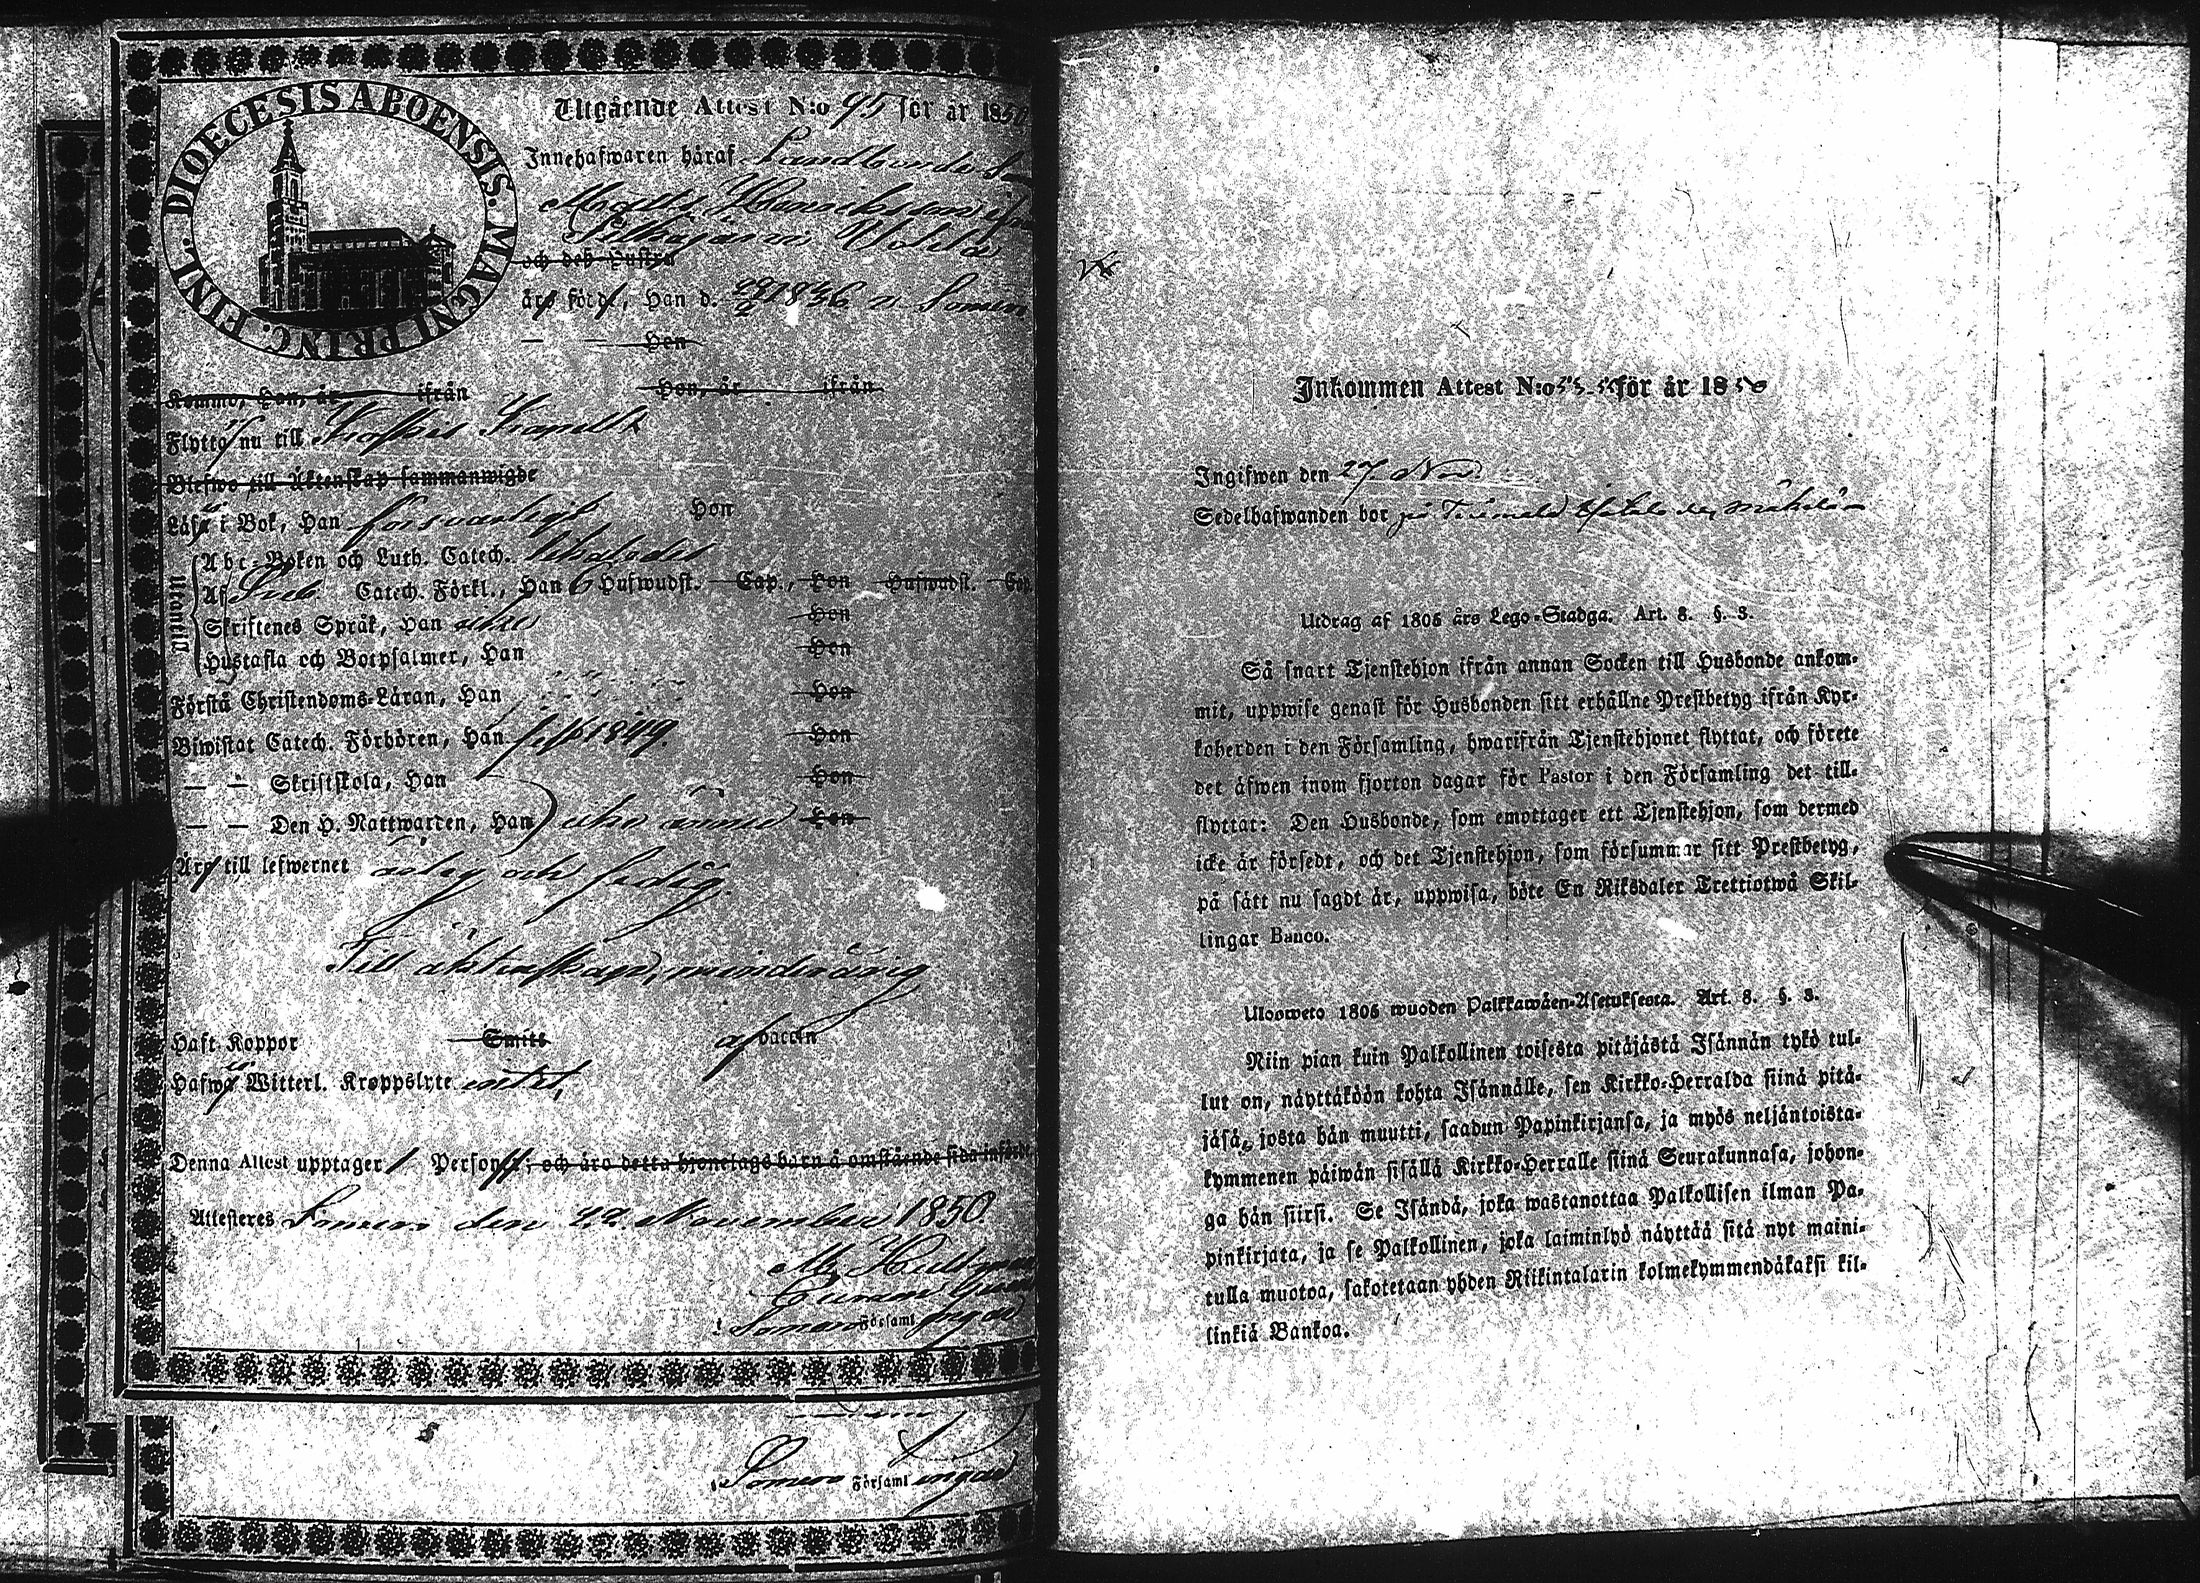 DIOECESIS ABOENSIS. MAGNI PRINC. FINL.
Utgående Attest N:o 95 för år 1850
Innehafwaren håraf Landbonde
Matts Henricsson ifrån
och deß Hustru
år född, Han d. 1836 i Somero
— — Hon
Kommo, Han, år ifrån Hon, år ifrån
Flyttar nu till
Blefwo till Äktenskap sammanwigde
Läser i Bok, Han försvarligt Hon
Utantill
Abc-Boken och Luth. Catech.
Af Sveb. Catech. Förkl., Han 6 Hufwudst. Cap., Hon Hufwudst. Cap.
Skriftenes Språk, Han Hon
Hustafla och Botpsalmer, Han Hon
Förstå Christendoms-Läran, Han Hon
Biwistat Catech. Förhören, Han sist 1849. Hon
— — Skriftskola, Han Hon
— — Den H. Nattwarden, Han icke ännu Hon
Är till lefwernet ärlig och fredig.
Till äktenskap, minderårig
Haft Koppor Smitt af vaccin
Hafwa Witterl. Kroppslyte intet,
Denna Attest upptager 1 Person; och äro detta hjonelags barn å omstående sida införde
Attesteres Somero den 22 November 1850.
i Somero Församlingar
i Somero Församlingar
Inkommen Attest N:o för år 1850
Ingifwen den 27. Nov.
Sedelhafwanden bor på
Utdrag af 1805 års Lego-Stadga. Art. 8. §. 3.
Så snart Tjenstehjon ifrån annan Socken till Husbonde ankom-
mit, uppwise genast för Husbonden sitt erhållne Prestbetyg ifrån Kyr-
koherden i den Församling, hwarifrån Tjenstehjonet flyttat, och förete
det äfwen inom fjorton dagar för Pastor i den Församling det till-
flyttat: Den Husbonde, som emottager ett Tjenstehjon, som dermed
icke är försedt, och det Tjenstehjon, som försummar sitt Prestbetyg,
på sätt nu sagdt är, uppwisa, böte En Riksdaler Trettiotwå Skil-
lingar Banco.
Uloosweto 1805 wuoden Palkkawäen-Asetuksesta. Art. 8. §. 3.
Niin pian kuin Palkollinen toisesta pitäjästä Isännän tykö tul-
lut on, näyttäköön kohta Isännälle, sen Kirkko-Herralda siinä pitä-
jäsä, josta hän muutti, saadun Papinkirjansa, ja myös neljäntoista-
kymmenen päiwän sisällä Kirkko-Herralle siinä Seurakunnasa, johon-
ga hän siirsi. Se Isändä, joka wastanottaa Palkollisen ilman Pa-
pinkirjata, ja se Palkollinen, joka laiminlyö näyttää sitä nyt maini-
tulla muotoa, sakotetaan yhden Riikintalarin kolmekymmendäkaksi kil-
linkiä Bankoa.